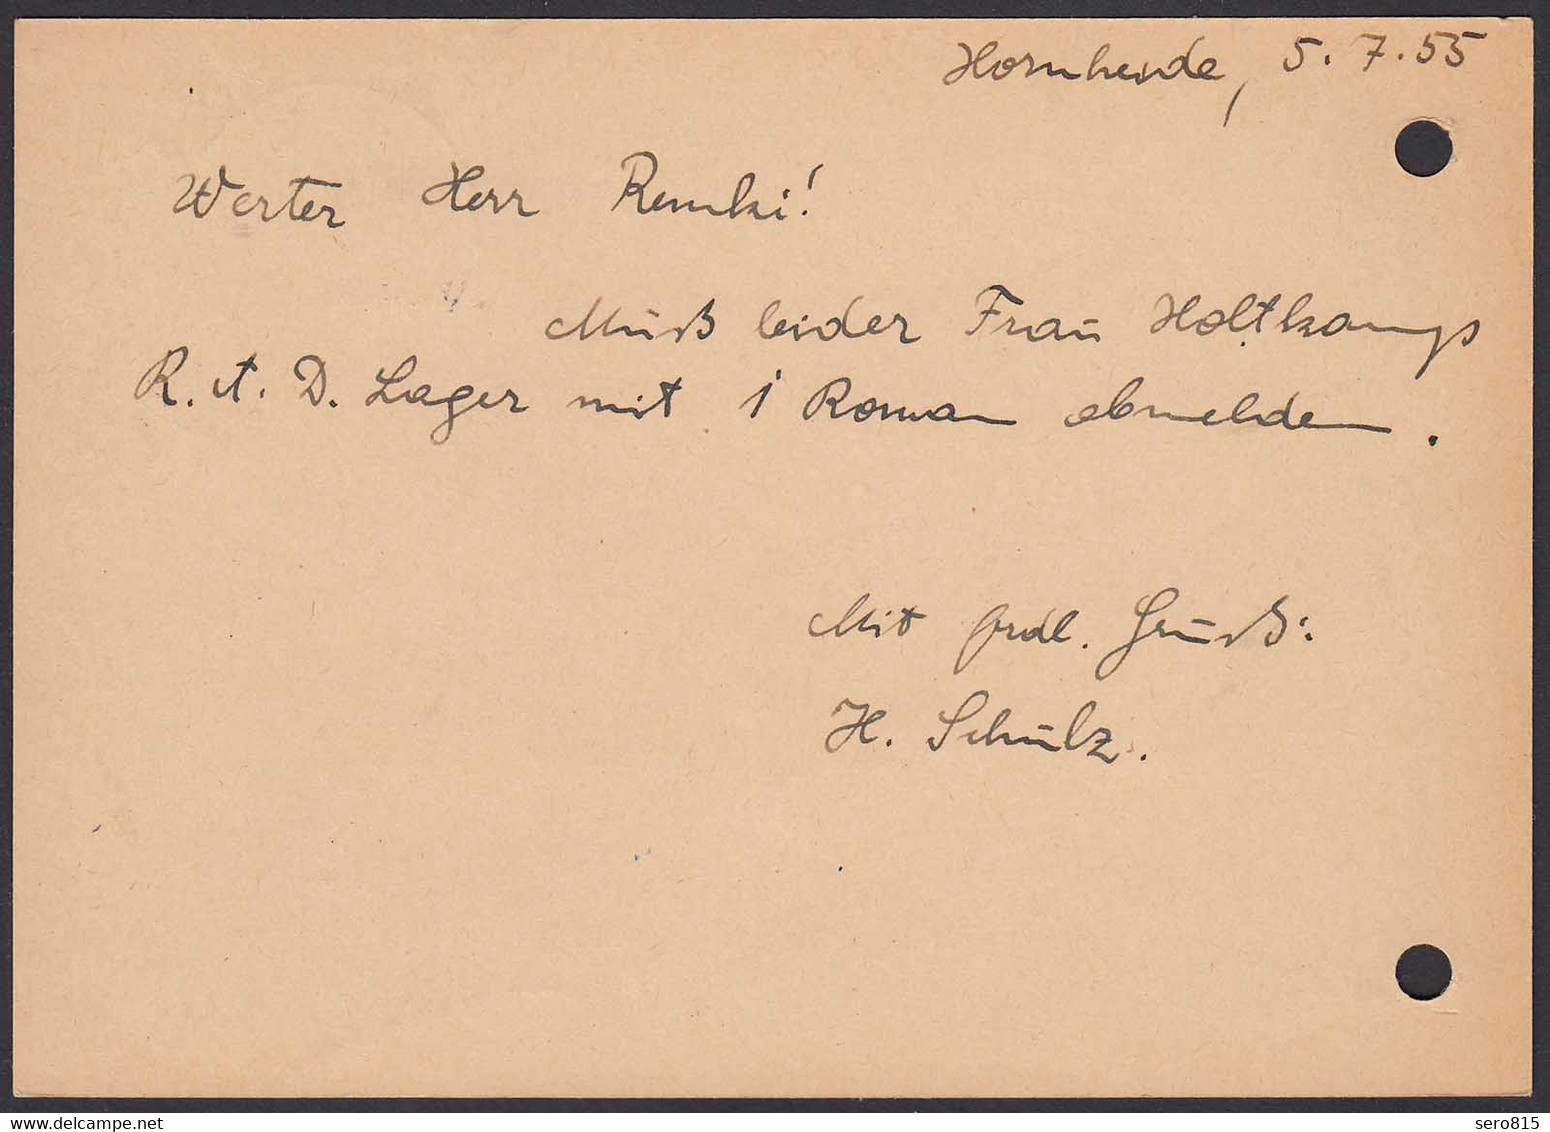 Hornheide, 5. 7. 55
Werter Herr Remki!
Muß leider Frau Holtkamp
R. A. D. Lager mit 1 Roman abmelden.
Mit frdl. Gruß:
H. Schulz.
delcampe.net
sero815